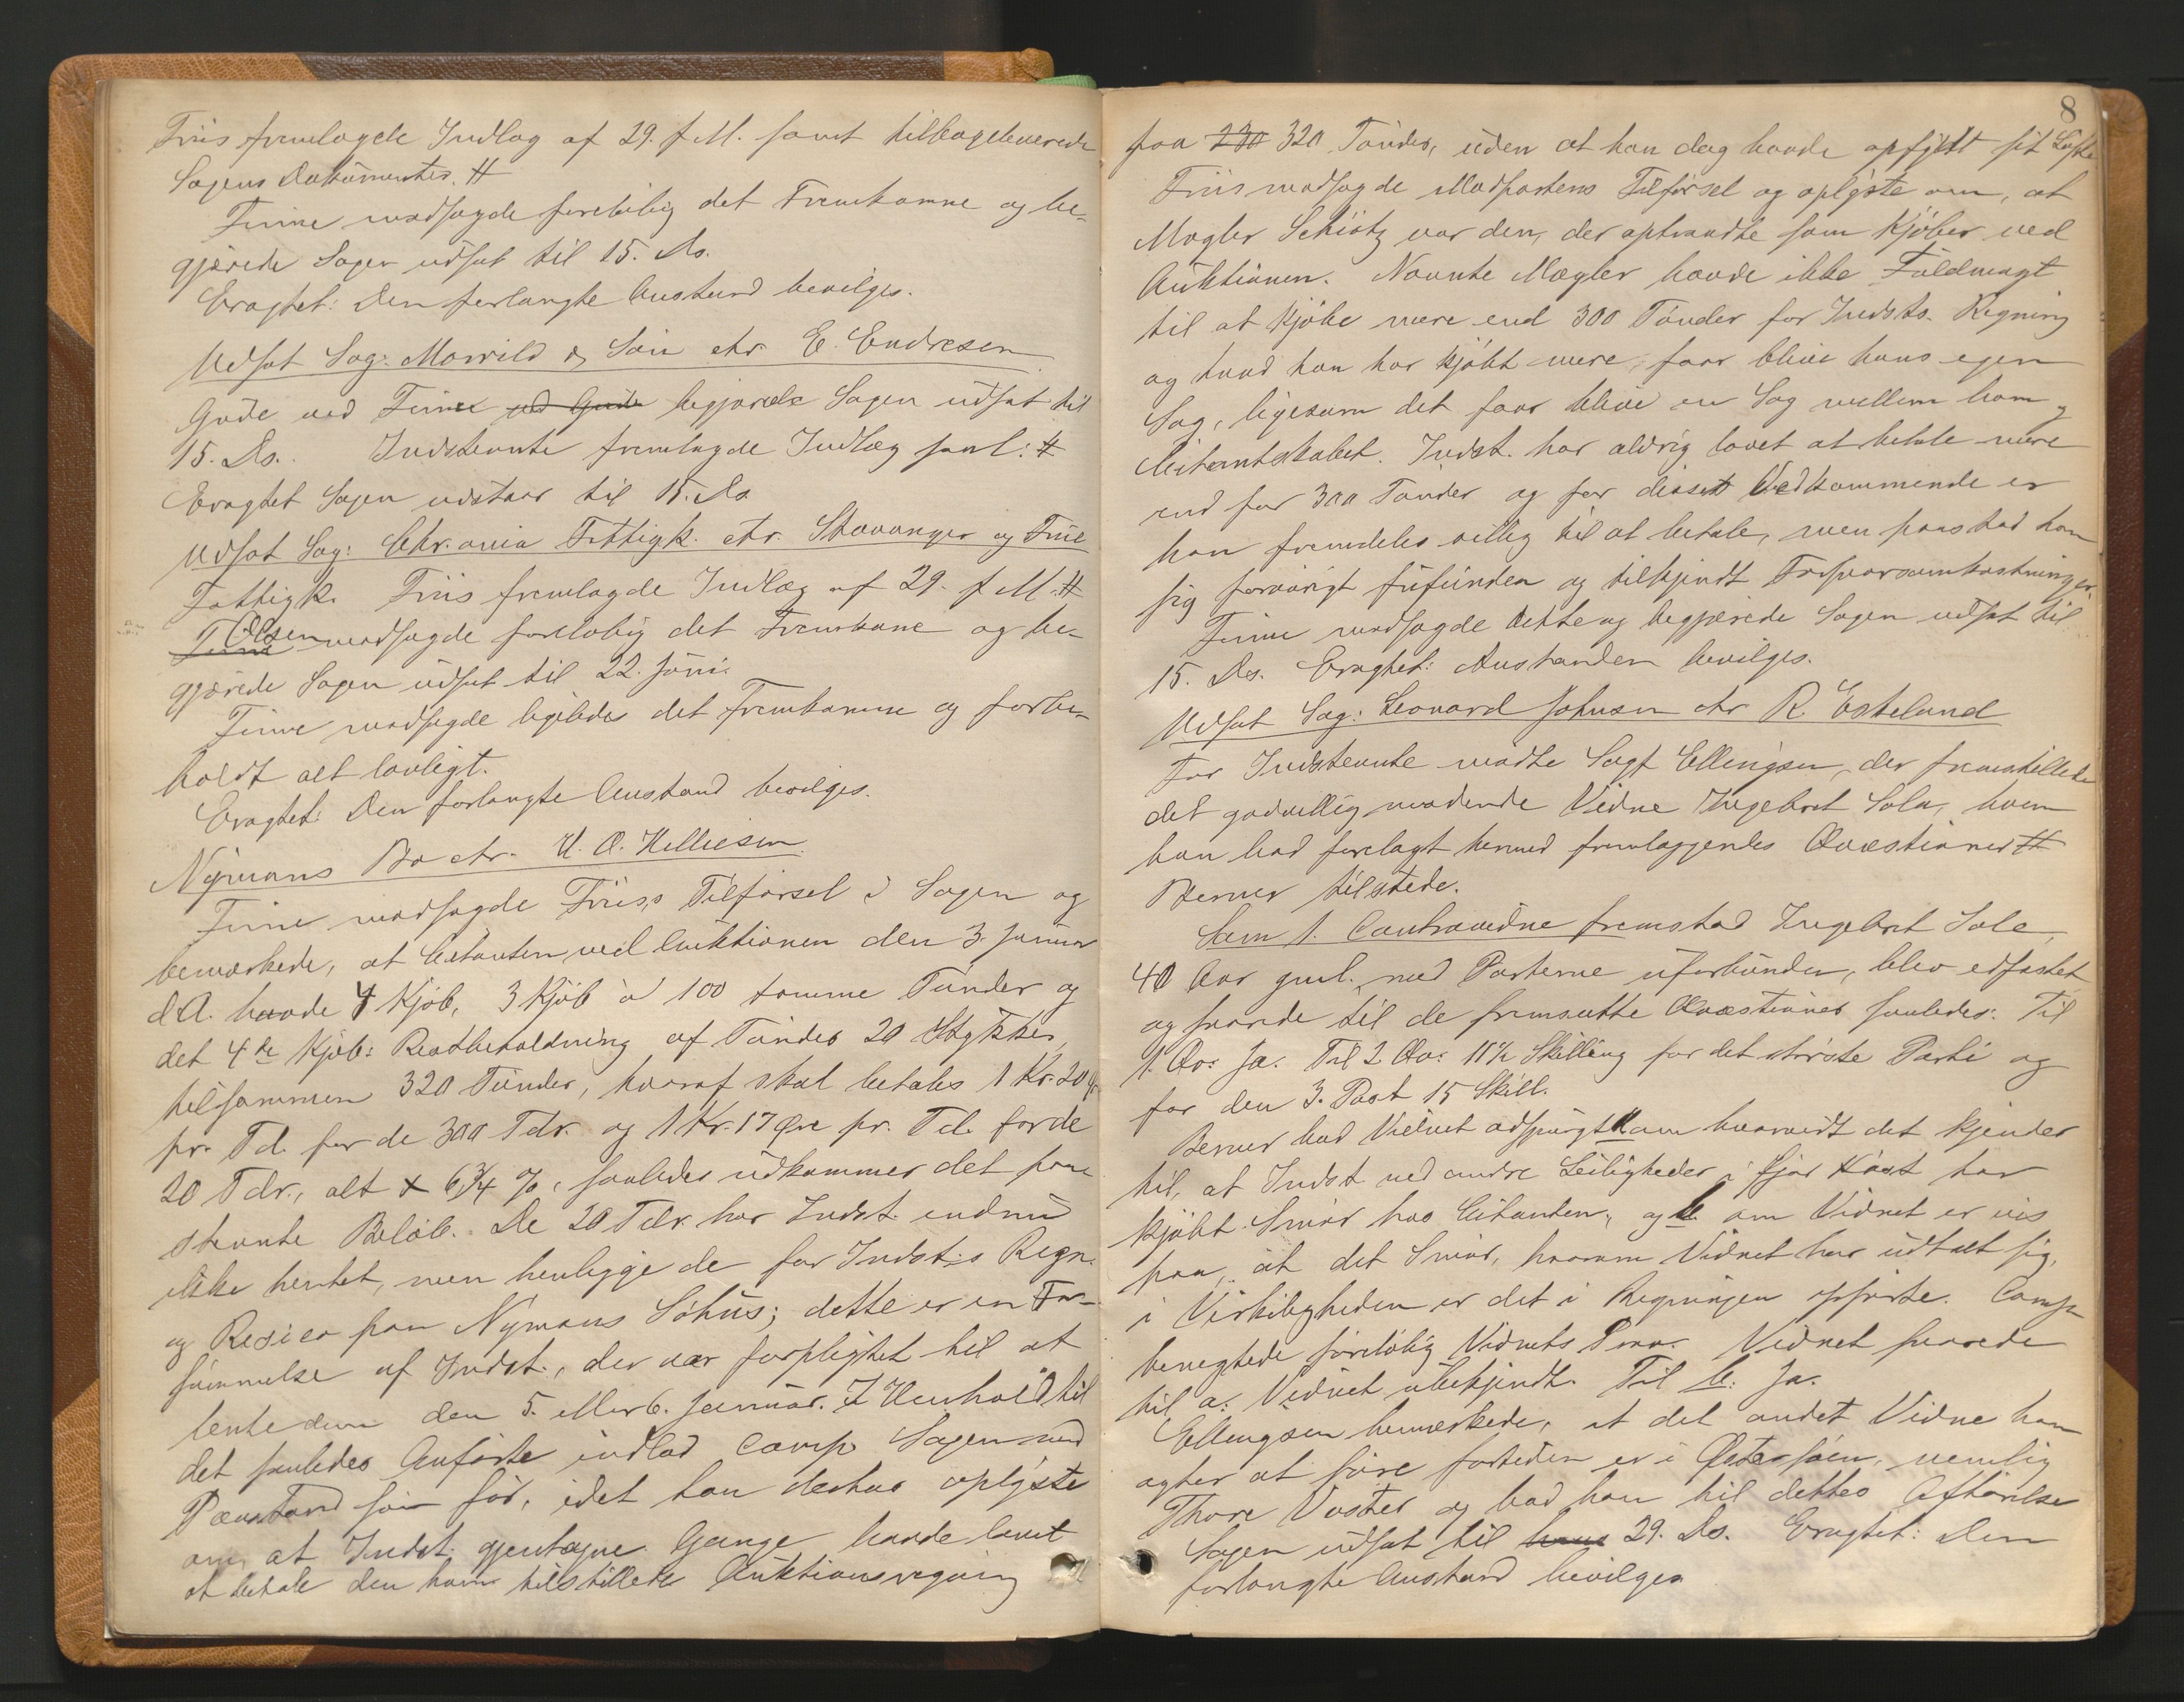 Friis fremlagde Indlæg af 29. f. M. samt tilbageleverede
Sagens Dokumenter. #
Finne modsagde foreløbig det Fremkomne og be-
gjærede Sagen udsat til 15. ds.
Eragtet: Den forlangte Anstand bevilges.
Udsat Sag: Mowild & Søn ctr. E. Endresen
Gude ved Finne ved Gude begjærede Sagen udsat til
15. Ds. Indstevnte fremlagde Indlæg saal: #
Eragtet Sagen udstaar til 15. Ds.
Udsat Sag: Chr.ania Fattigk. ctr. Stavanger og Finø
Fattigk. Friis fremlagde Indlæg af 29. f. M. #
Finne Olsen modsagde foreløbig det Fremkomne og be-
gjærede Sagen udsat til 22. Juni.
Finne modsagde ligeledes det Fremkomne og forbe-
holdt alt lovligt.
Eragtet: Den forlangte Anstand bevilges.
Nymans Bo ctr. H. O. Helliesen.
Finne modsagde Friis's Tilførsel i Sagen og
bemærkede, at Citanten ved Auktionen den 3. Januar
d. A. havde 4 Kjøb, 3 Kjøb à 100 tomme Tønder og
det 4de Kjøb: Restbeholdning af Tønder 20 Stykker,
tilsammen 320 Tønder, hvoraf skal betales 1 Kr. 20
pr. Td. for de 300 Tdr. og 1 Kr. 17 Øre pr. Td. for de
20 Tdr., alt + 6 3/4 %, saaledes udkommer det paa-
stevnte Beløb. De 20 Tdr. har Indst. endnu
ikke hentet, men henligge de for Indst:s Regn.
og Risico paa Nymans Søhus; dette er en For-
sømmelse af Indst., der var forpligtet til at
hente dem den 5. eller 6. Januar. I Henhold til
det saaledes Anførte indlod Comp. Sagen med
Paastand som før, idet han derhos oplyste
om, at Indst. gjentagne Gange havde lovet
at betale den ham tilstillede Auktionsregning
8
paa 230 320 Tønder, uden at han dog havde opfyldt sit Løfte
Friis modsagde Modpartens Tilførsel og oplyste om, at
Mægler Schiøtz var den, der optraadte som Kjøber ved
Auktionen. Nævnte Mægler havde ikke Fuldmagt
til at kjøbe mere end 300 Tønder for Indsts. Regning
og hvad han har kjøbt mere, faar blive hans egen
Sag, ligesom det faar blive en Sag mellem ham og
Citantskabet. Indst. har aldrig lovet at betale mere
end for 300 Tønder og for disses Vedkommende er
han fremdeles villig til at betale, men paastod han
sig forøvrigt frifunden og tilkjendt Forsvarsomkostninger.
Finne modsagde dette og begjærede Sagen udsat til
15. Ds. Eragtet: Anstanden bevilges.
Udsat Sag: Leonard Johnsen ctr R. Eskeland
For Indstevnte mødte Sagf. Ellingsen, der fremstillede
det godvillig mødende Vidne Ingebret Sola, hvem
han bad forelagt hermed fremlæggendes Qvæstioner #
Berner tilstede.
Som 1. Contravidne fremstod Ingebret Sole,
40 Aar gml. med Parterne uforbunden, blev edfæstet
og svarede til de fremsatte Qvæstioner saaledes: Til
1. Qv: Ja. Til 2 Qv: 11 1/2 Skilling for det største Parti og
for den 3. Post 15 Skill.
Berner bad Vidnet adspurgt a om hvorvidt det kjender
til, at Indst ved andre Leiligheder i fjor Høst har
kjøbt Smør hos Citanten, og b. om Vidnet er vis
paa, at det Smør, hvorom Vidnet har udtalt sig,
i Virkeligheden er det i Regningen opførte. Comp.
benegtede foreløbig Vidnets Prov. Vidnet svarede
til a: Vidnet ubekjendt. Til b: Ja.
Ellingsen bemærkede, at det andet Vidne han
agter at føre fortiden er i Østersøen, nemlig
Thore Vaster og bad han til dettes Afhørelse
Sagen udsat til 29. Ds. Eragtet: Den
forlangte Anstand bevilges